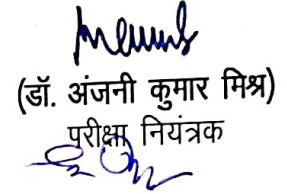 (डॉ. अंजनी कुमार मिश्र)
परीक्षा नियंत्रक